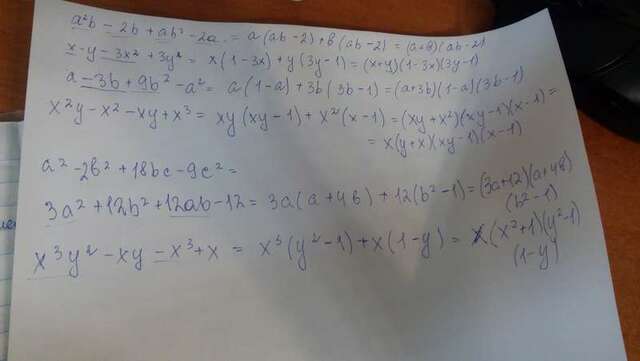 a²b - 2b + ab² - 2a = a(ab-2) + b(ab-2) = (a+b)(ab-2)
x - y - 3x² + 3y² = x(1-3x) + y(3y-1) = (x+y)(1-3x)(3y-1)
a - 3b + 9b² - a² = a(1-a) + 3b(3b-1) = (a+3b)(1-a)(3b-1)
x²y - x² - xy + x³ = xy(xy-1) + x²(x-1) = (xy+x²)(xy-1)(x-1) =
= x(y+x)(xy-1)(x-1)
a² - 2b² + 18bc - 9c² =
3a² + 12b² + 12ab - 12 = 3a(a+4b) + 12(b²-1) = (3a+12)(a+4b)
(b²-1)
x³y² - xy - x³ + x = x³(y²-1) + x(1-y) = x(x²+1)(y²-1)
(1-y)